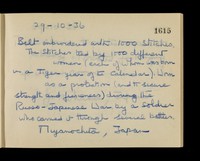 29-10-36
1615
Belt embroidered with 1000 stitches.
The stitches tied by 1000 different
women (each of whom was born
in a Tiger year of the Calendar). Worn
as a protection (and to secure
strength and fierceness) during the
Russo-Japanese War by a soldier
who carried it through several battles.
Japan